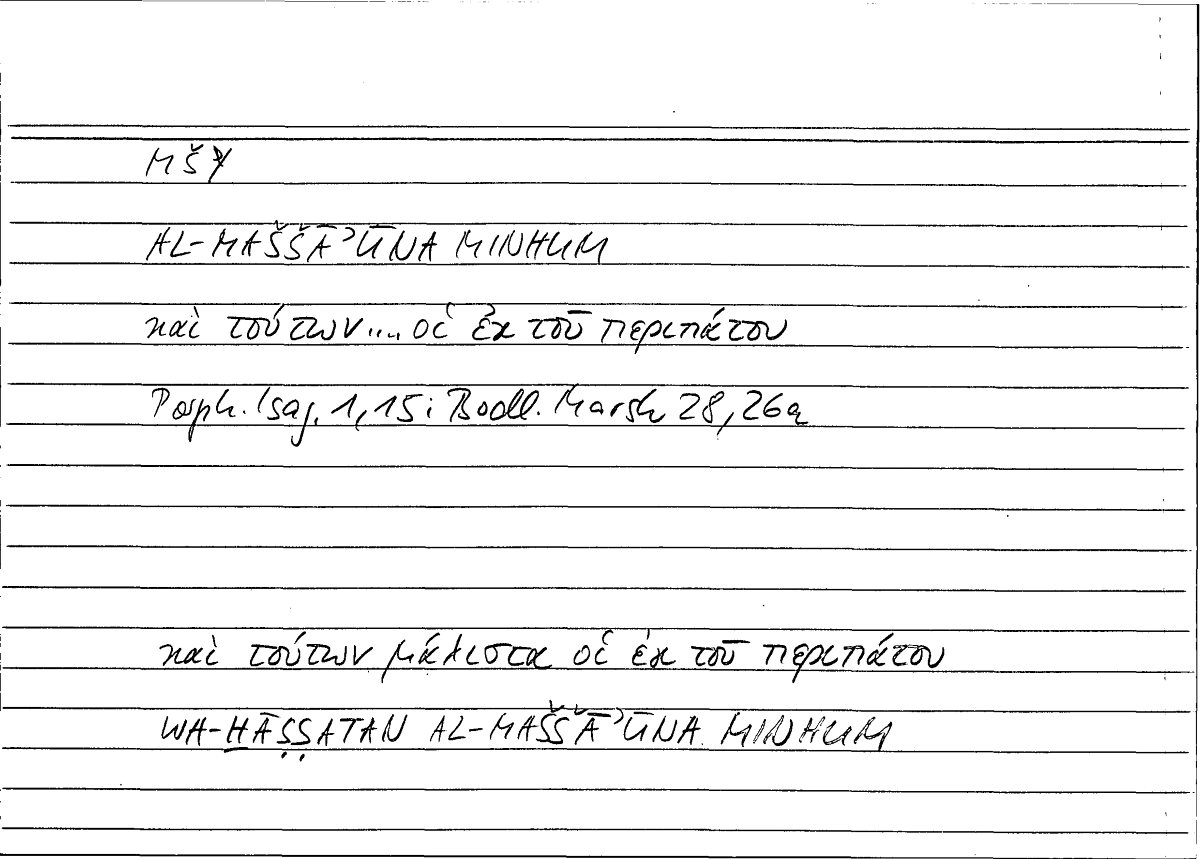 MŠY
AL-MAŠŠĀʾŪNA MINHUM
καὶ τούτων.... οἱ ἐκ τοῦ περιπάτου
Porph. Isag. 1,15: Bodl. Marsh 28, 26a
καὶ τούτων μάλιστα οἱ ἐκ τοῦ περιπάτου
WA-ḪĀṢṢATAN AL-MAŠŠĀʾŪNA MINHUM